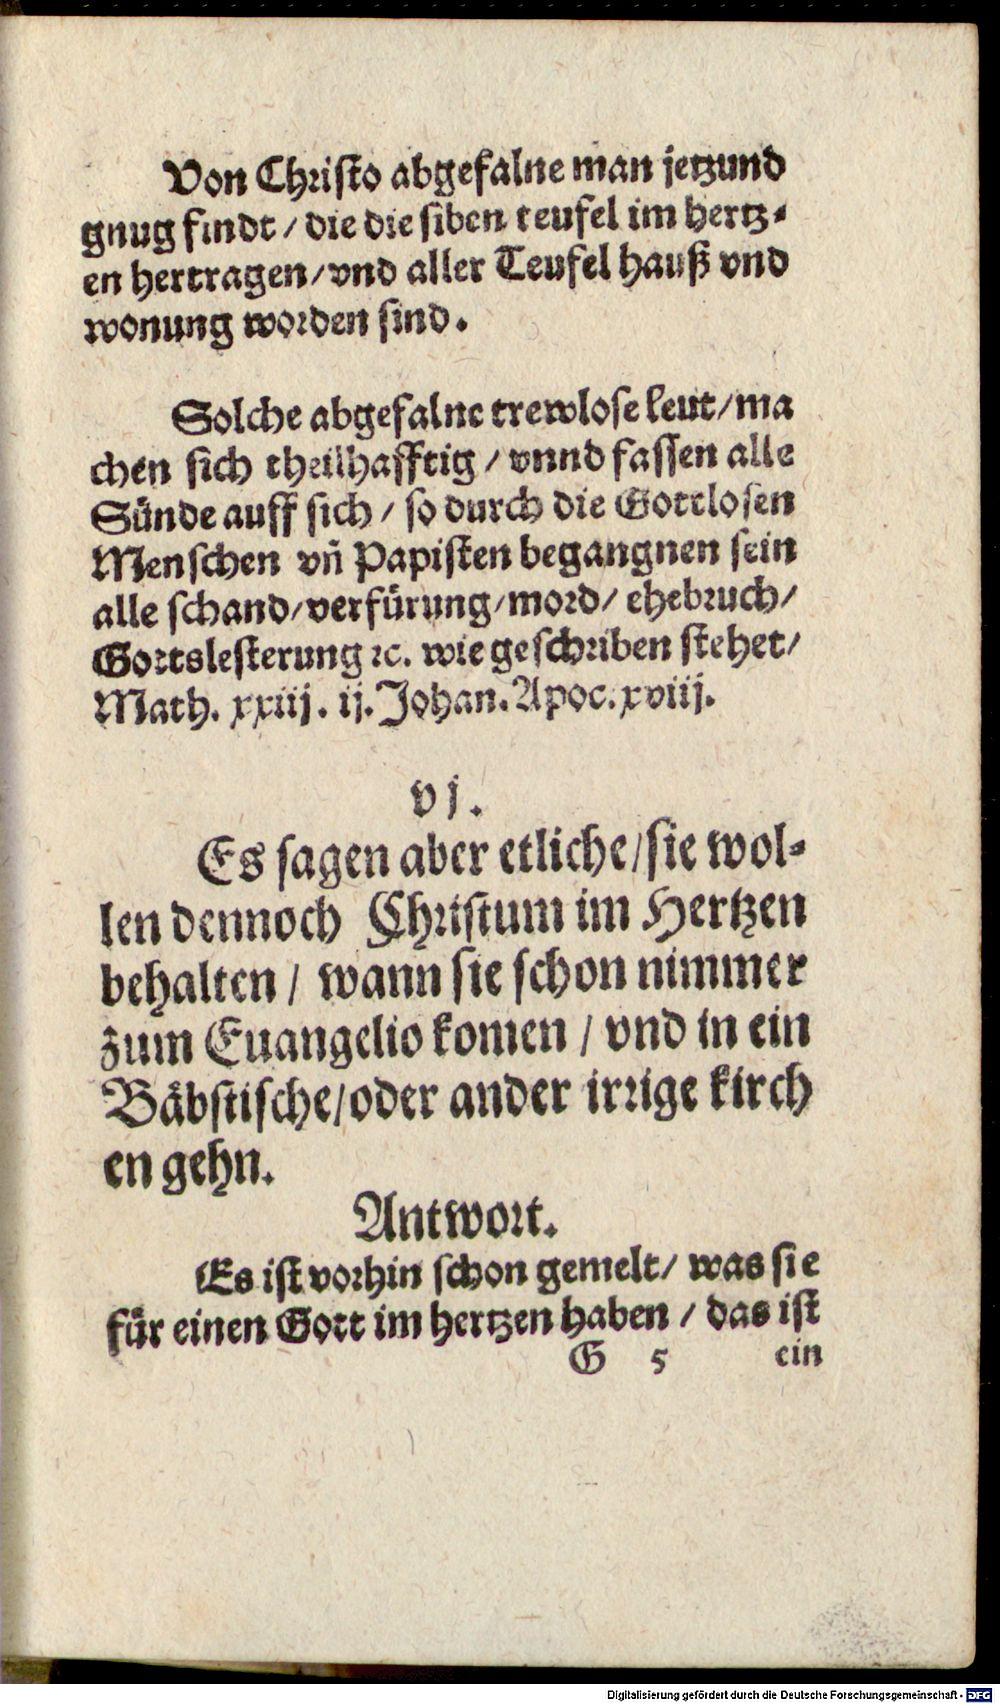 Von Christo abgefalne man jetzund
gnug findt / die die siben teufel im hertz-
en hertragen / vnd aller Teufel hauß vnd
wonung worden sind.
Solche abgefalne trewlose leut / ma
chen sich theilhafftig / vnnd fassen alle
Sünde auff sich / so durch die Gottlosen
Menschen vñ Papisten begangnen sein
alle schand / verfürung / mord / ehebruch /
Gottslesterung ꝛc. wie geschriben stehet /
Math. xxiij. ij. Johan. Apoc. xviij.
vj.
Es sagen aber etliche / sie wol-
len dennoch Christum im Hertzen
behalten / wann sie schon nimmer
zum Euangelio komen / vnd in ein
Bäbstische / oder ander irrige kirch
en gehn.
Antwort.
Es ist vorhin schon gemelt / was sie
für einen Gott im hertzen haben / das ist
G 5 ein
Digitalisierung gefördert durch die Deutsche Forschungsgemeinschaft - DFG